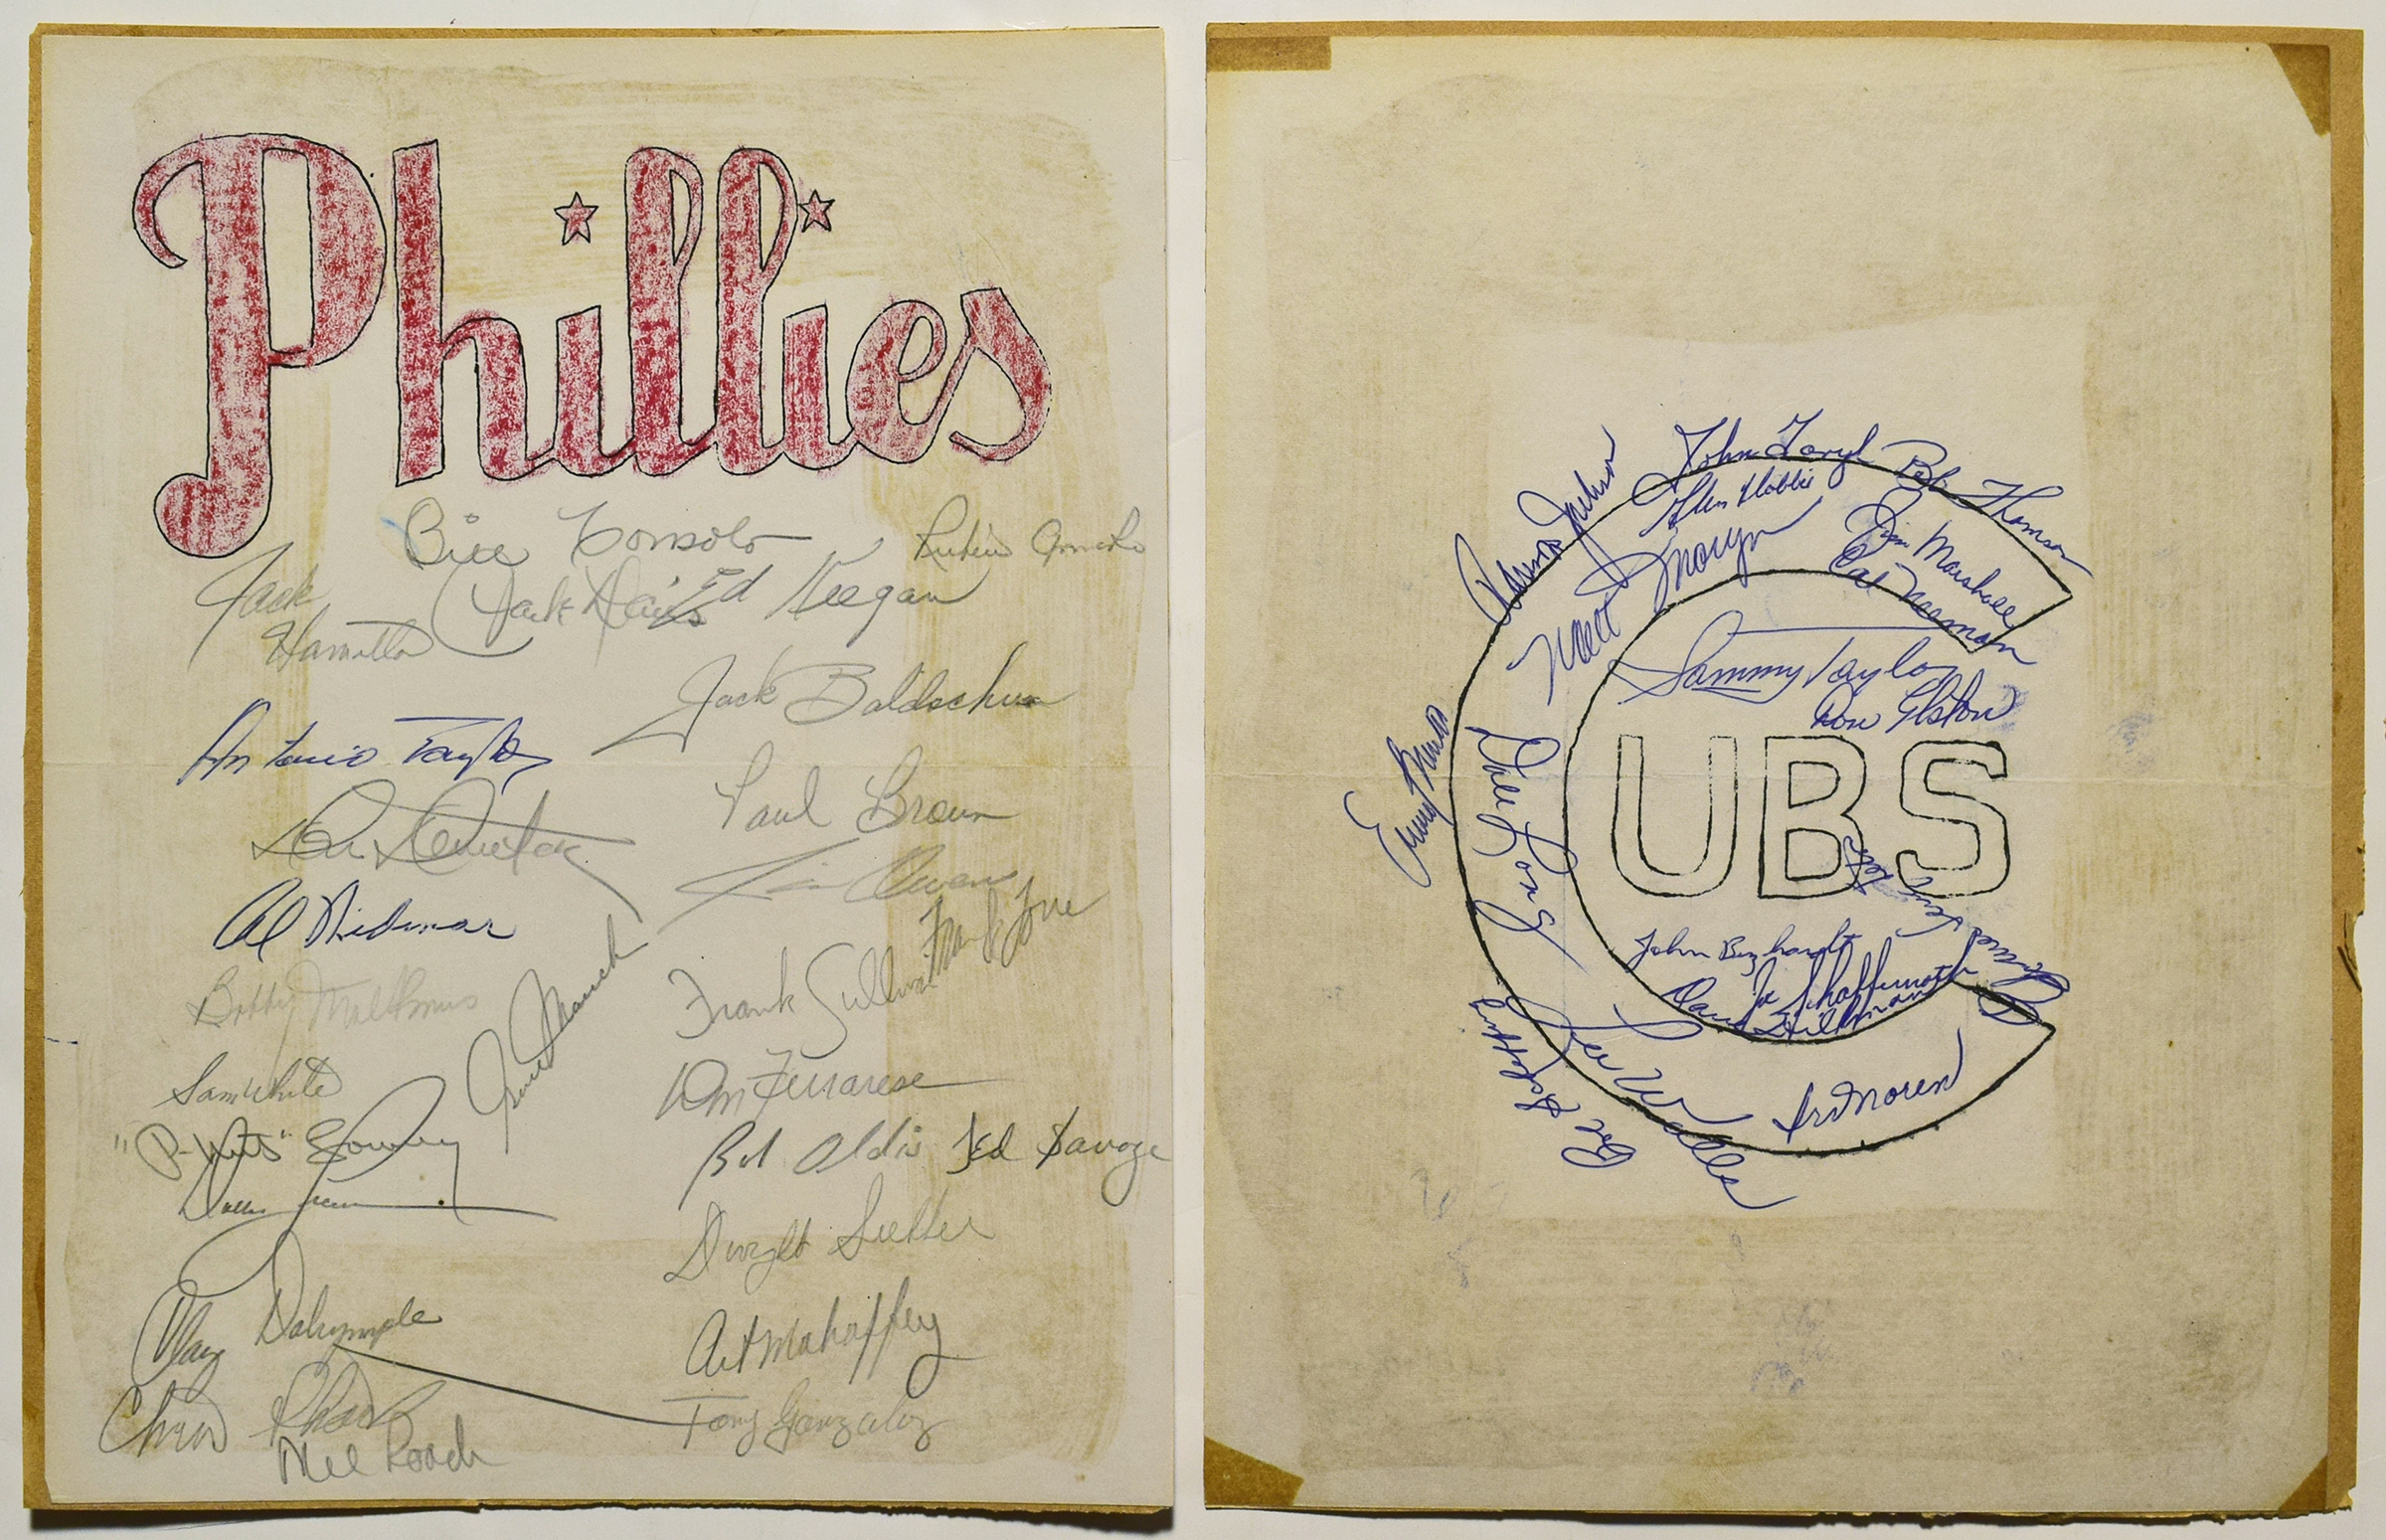 Phillies
Bill Consolo
Ruben
Jack
Hamilton
Jack Davis
Ed Keegan
Jack Baldschun
Antonio Taylor
Paul Brown
Don Demeter
Jim Owens
Al Widmar
Frank Torre
Bobby Malkmus
Gene Mauch
Frank Sullivan
Sam White
Don Ferrarese
"P-Nuts" Lowrey
Bob Oldis
Ted Savage
Dallas Green
Dwight Siebler
Clay Dalrymple
Art Mahaffey
Chris Short
Tony Gonzalez
Mel Roach
John Goryl
Bob Thomson
Glen Hobbie
Jim Marshall
Cal Neeman
Walt Moryn
Sammy Taylor
Don Elston
Erny Banks
Dale Long
CUBS
John Buzhardt
Joe Schaffernoth
Dave Hillman
Lee Walls
Irv Noren
Charles